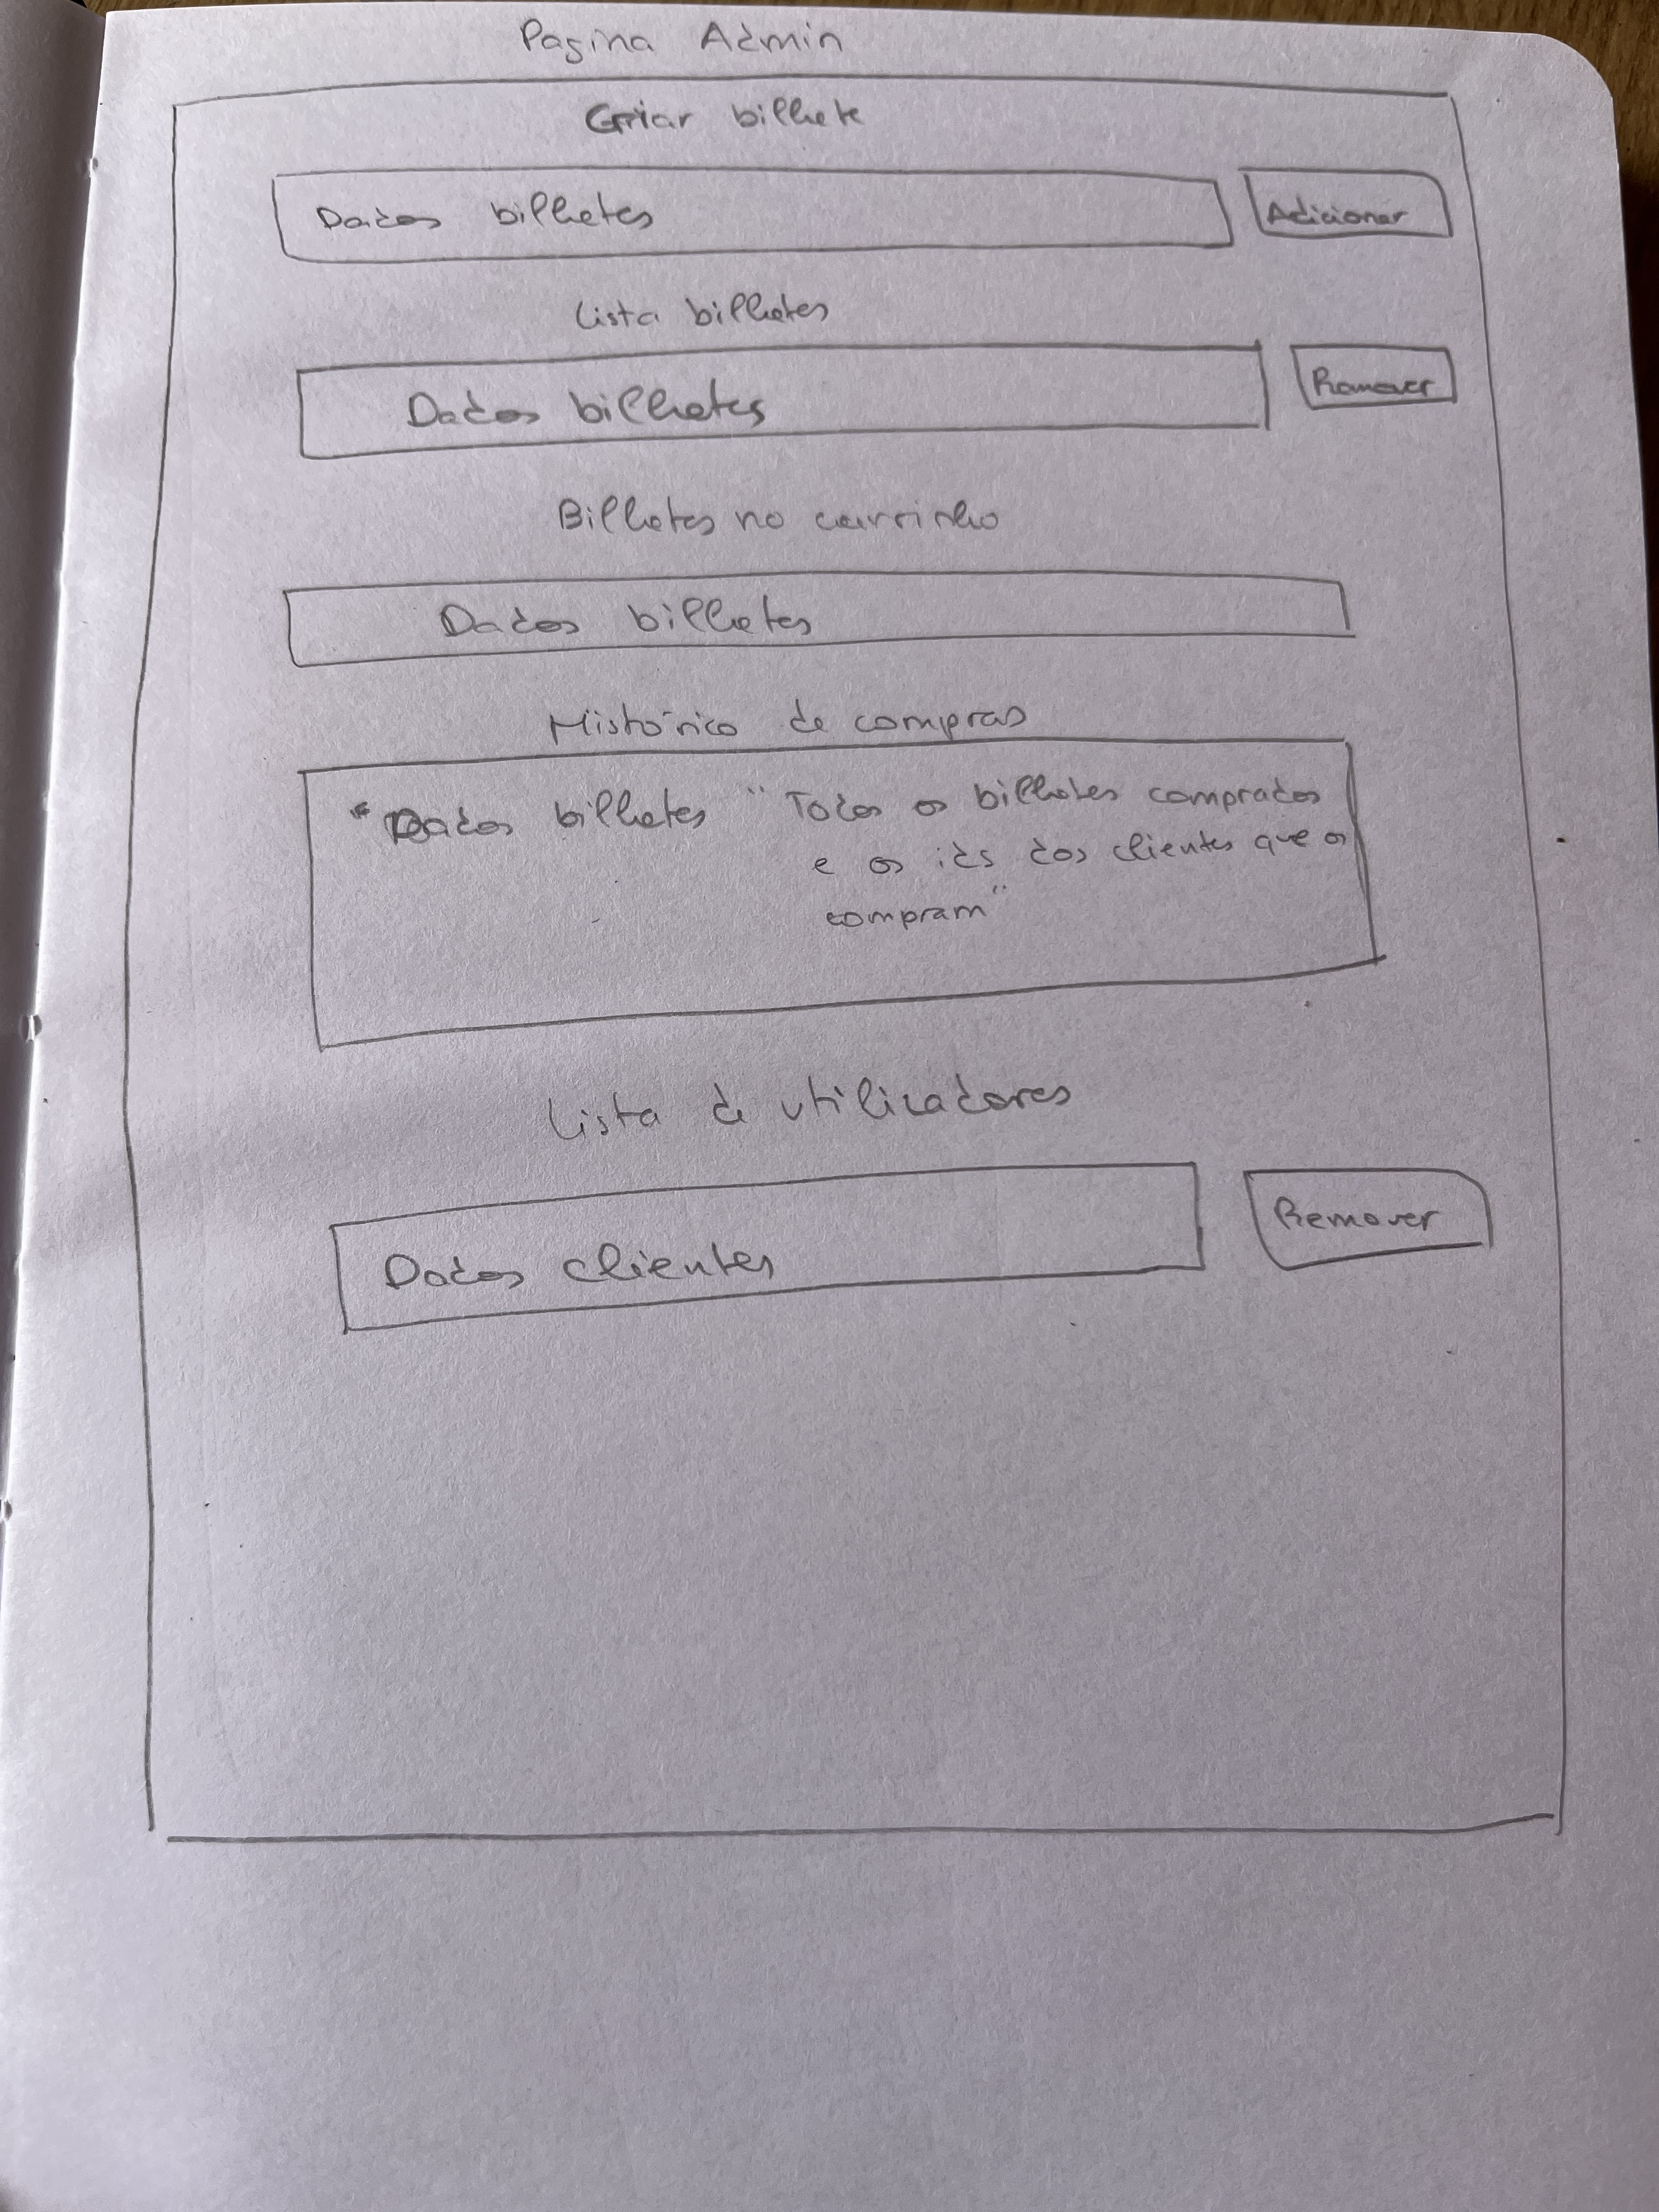 Pagina Admin
Criar bilhete
Dados bilhetes
Adicionar
Lista bilhetes
Dados bilhetes
Remover
Bilhetes no carrinho
Dados bilhetes
Histórico de compras
"Dados bilhetes " Todos os bilhetes comprados
e os ids dos clientes que os
compram"
Lista de utilizadores
Dados clientes
Remover